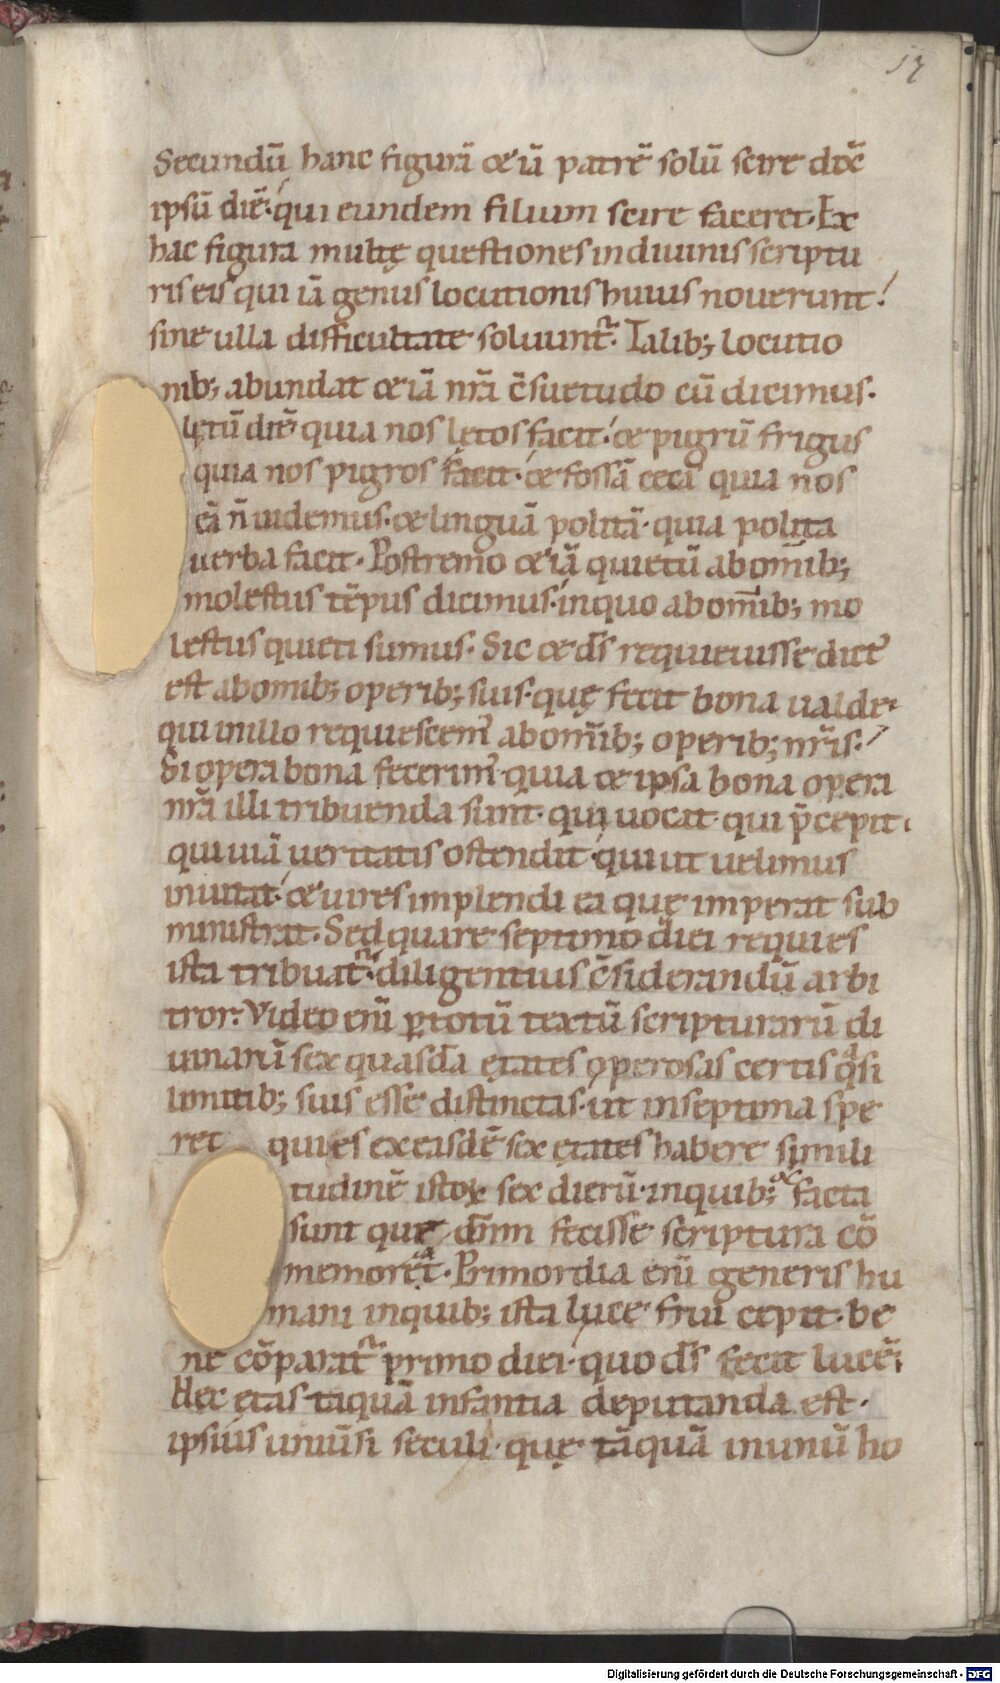 17
Secundū hanc figurā &iā patrē solū scire dic̄
ipsū diē· qui eundem filium scire faceret· Ex
hac figura multę questiones indiuinis scriptu
ris eis qui iā genus locutionis huius nouerunt!
sine ulla difficultate soluunt᷑. Talib; locutio
nib; abundat &iā nrā c̄suetudo cū dicimus·
lętū diē quia nos lętos facit· & pigrū frigus
quia nos pigros facit· & fossā cecā quia nos
eā n̄ uidemus· & linguā politā· quia polita
uerba facit· Postremo &iā quietū abom̄ib;
molestus tēpus dicimus· inquo abom̄ib; mo
lestus quieti sumus· Sic & ds̄ requieuisse dict᷒
est abomib; operib; suis· quę fecit bona ualde·
qui inillo requiescem᷒ abom̄ib; operib; nr̄is·
Si opera bona fecerim᷒· quia & ipsa bona opera
nrā illi tribuenda sunt· qui uocat· qui p̄cepit·
qui uiā ueritatis ostendit· qui ut uelimus
inuitat· & uires implendi ea quę imperat sub
ministrat· Sed quare septimo diei requies
ista tribuat᷑· diligentius c̄siderandū arbi
tror· Video enī ꝑ totū textū scripturarū di
uinarū sex quasdā ętates operosas certis qͣsi
limitib; suis esse distinctas· ut inseptima spe
ret quies exeasdē sex ętates habere simili
tudinē istoꝝ sex dierū· inquib; facta
sunt quę dm̄m fecisse scriptura cō
memorat· Primordia enī generis hu
mani inquib; ista luce frui cepit· be
ne cōparat᷑ primo diei· quo ds̄ fecit lucē·
Hec ętas tāquā infantia deputanda est·
ipsius uniūsi seculi· quę tāquā inunū ho
Digitalisierung gefördert durch die Deutsche Forschungsgemeinschaft · DFG